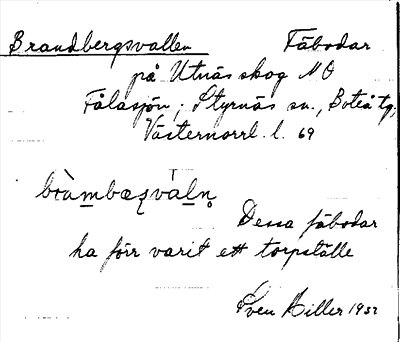 Brandbergsvallen Fäbodar
på Utnäs skog NO
Fälasjön, Styrnäs sn., Boteå tg,
Västernorrl. l. 69
bràmbæʂvaln̥
Dessa fäbodar
ha förr varit ett torpställe
Sven Hiller 1932